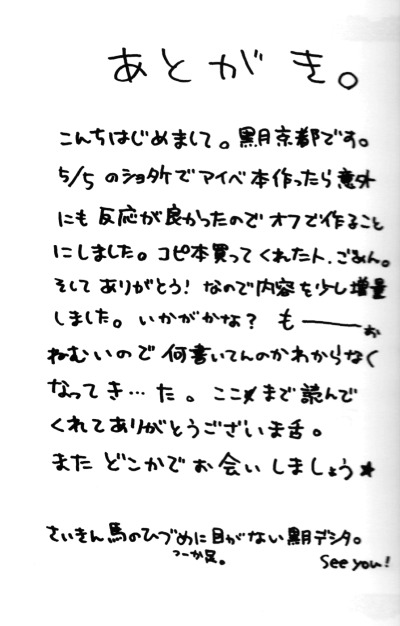 あとがき。
こんちはじめまして。黒月京都です。
5/5 のショタケでマイベ本作ったら意外
にも反応が良かったのでオフで作ること
にしました。コピ本買ってくれた人、ごめん。
そしてありがとう！なので内容を少し増量
しました。いかがかな？ もーーーぉ
ねむいので何書いてんのかわからなく
なってき…た。ここまで読んで
くれてありがとうございま舌。
またどこかでお会いしましょう★
さいきん馬のひづめに目がない黒月デシタ。
つーか足。
See you!